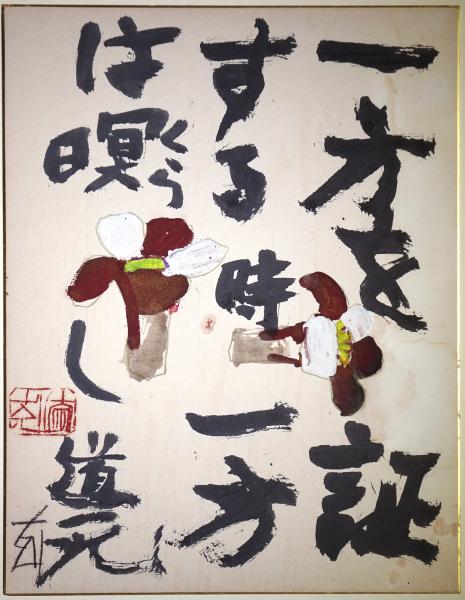 一方を証
する時一方
は暝し 道元
くら